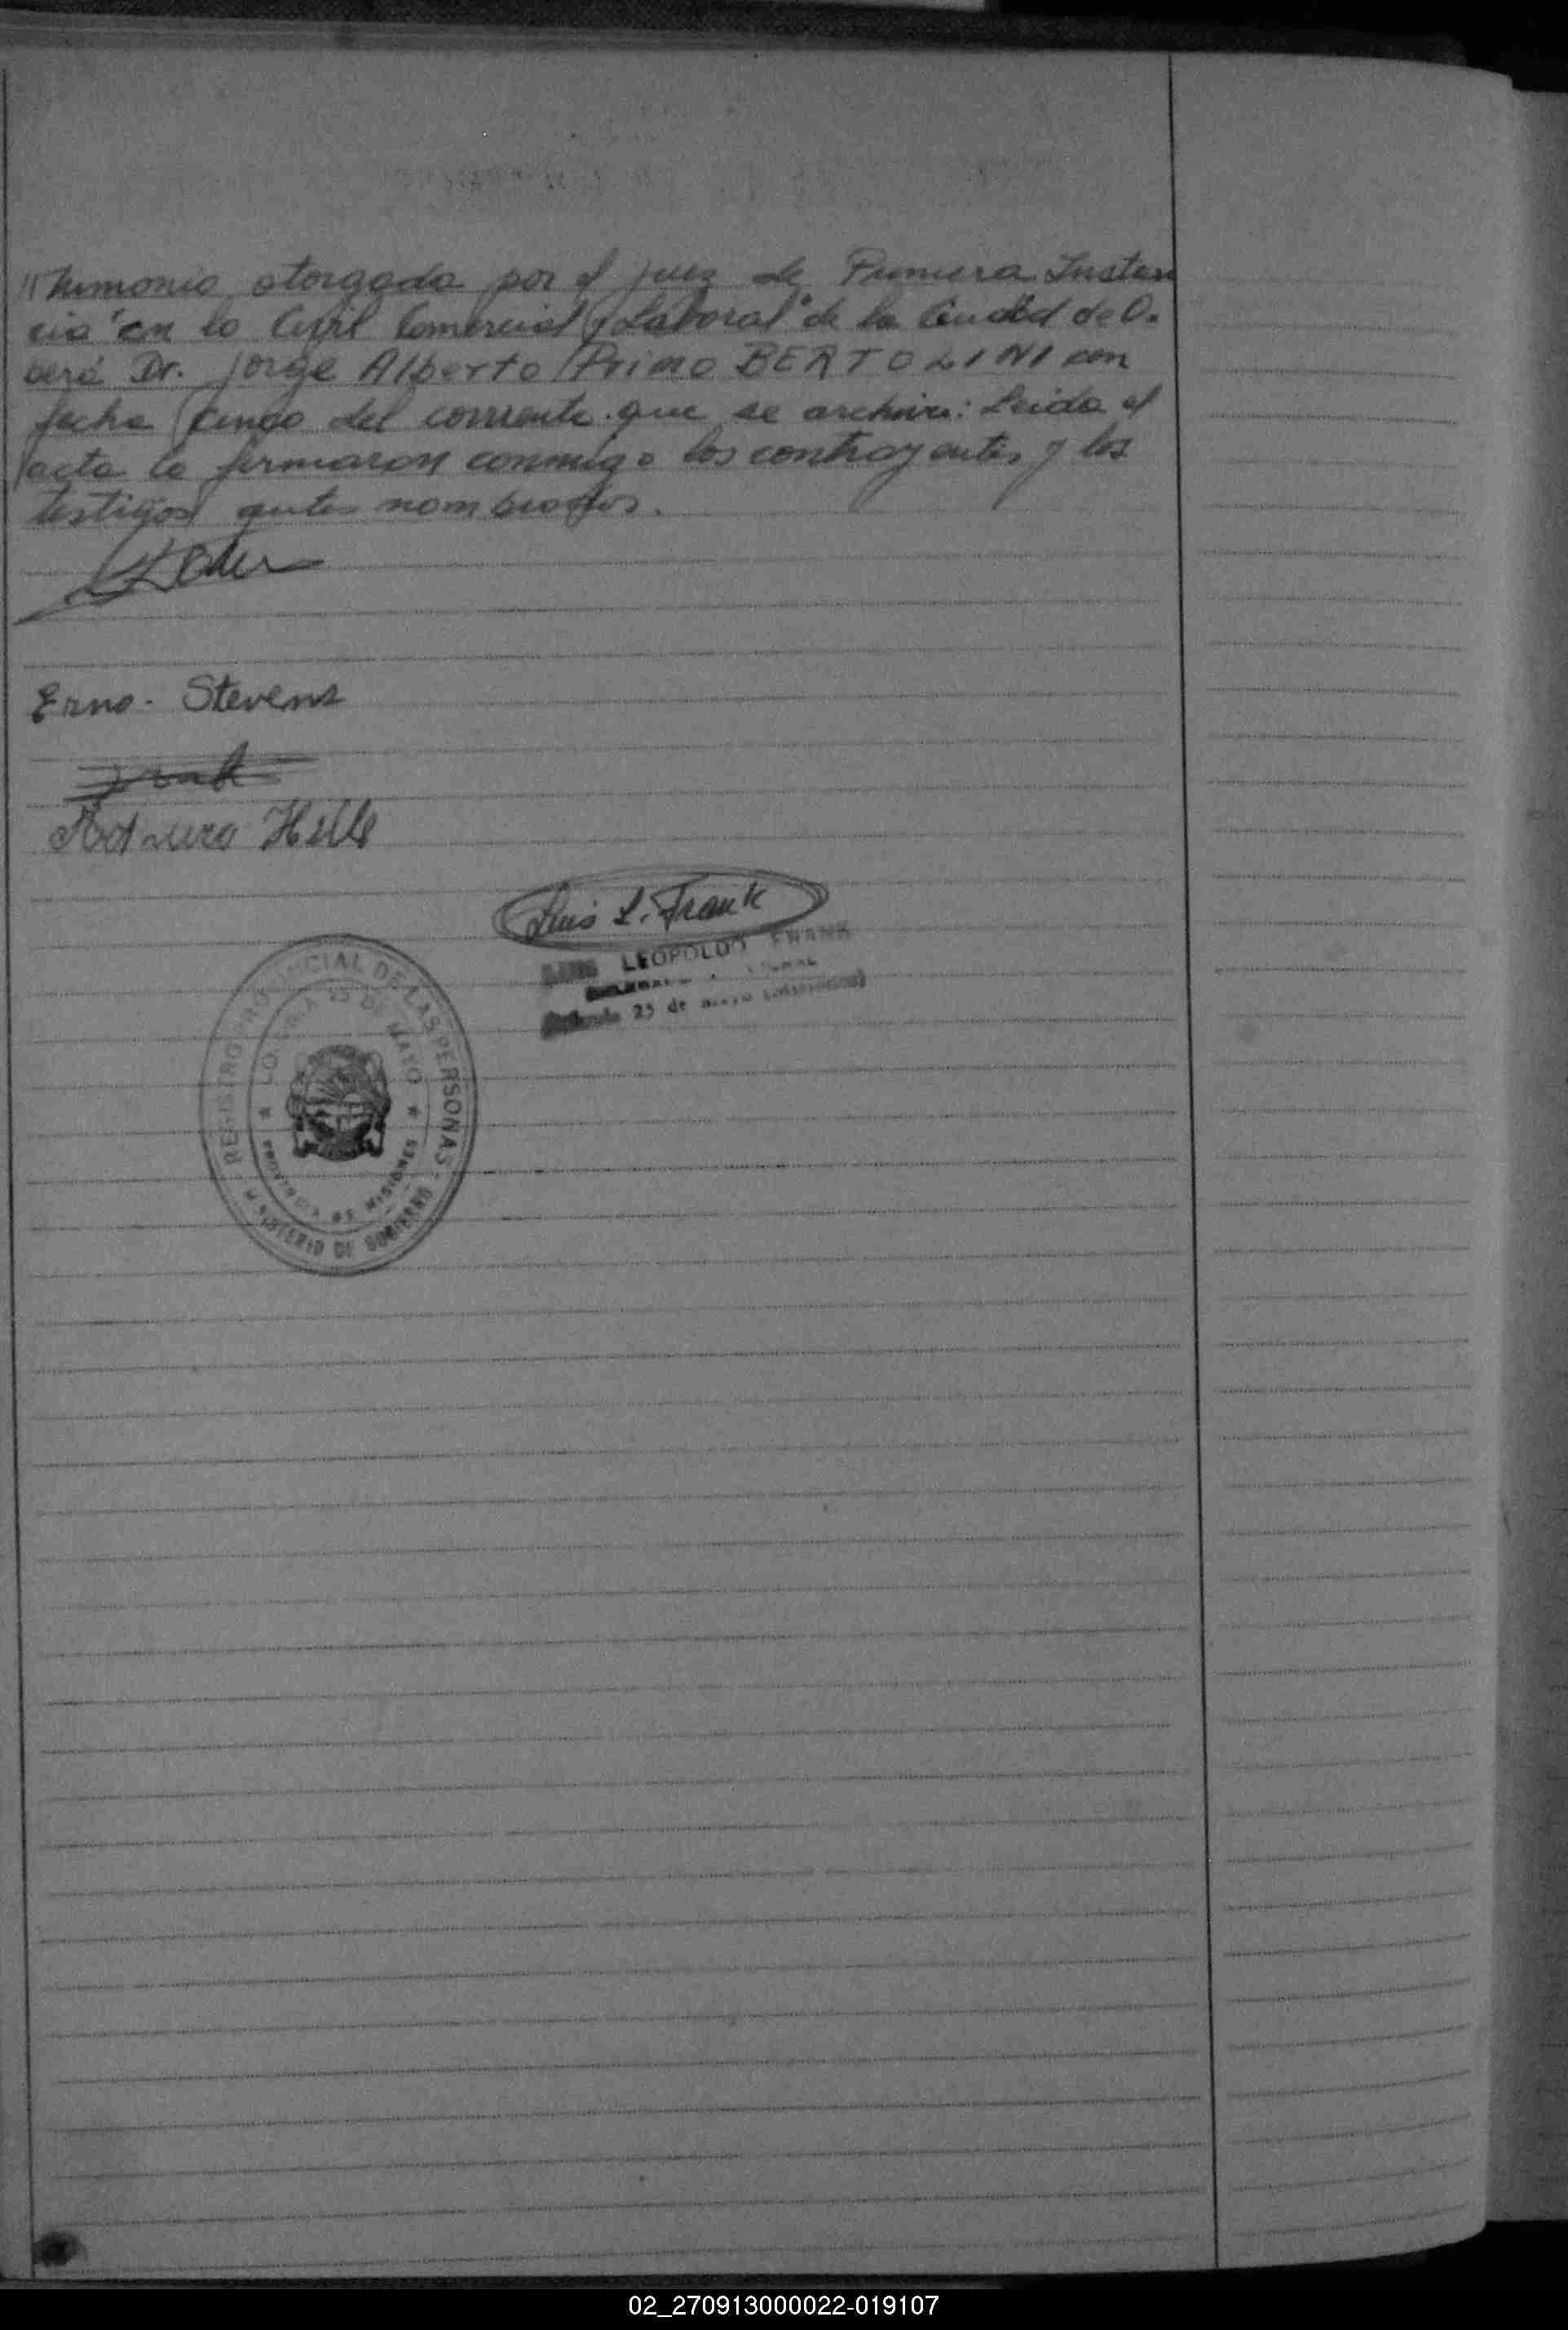 //trimonio otorgada por el juez de Primera Instan
cia en lo Civil Comercial y Laboral de la Ciudad de O.
berá Dr. Jorge Alberto Primo BERTOLINI con
fecha cinco del corriente que se archiva: Leida el
acta la firmaron conmigo los contrayentes y los
testigos antes nombrados.
Erno- Stevens
Arturo Hille
Luis L. Frank
LUIS LEOPOLDO FRANK
25 de mayo (Misiones)
REGISTRO PROVINCIAL DE LAS PERSONAS
MINISTERIO DE GOBIERNO
25 DE MAYO
PROVINCIA DE MISIONES
02_270913000022-019107